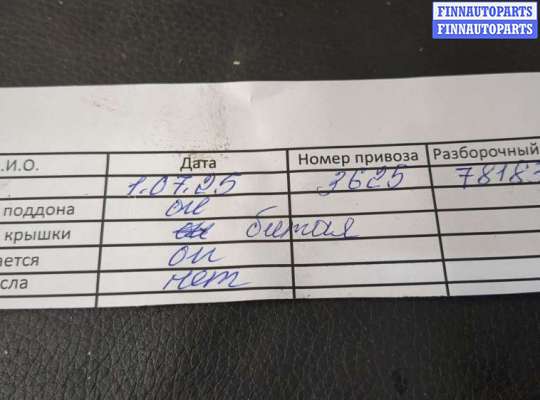 FINNAUTOPARTS
FINNAUTOPARTS
.И.О. Дата Номер привоза Разборочный
1.07.25 3625 7818
поддона ок
крышки ок битая
ается ок
сла нет